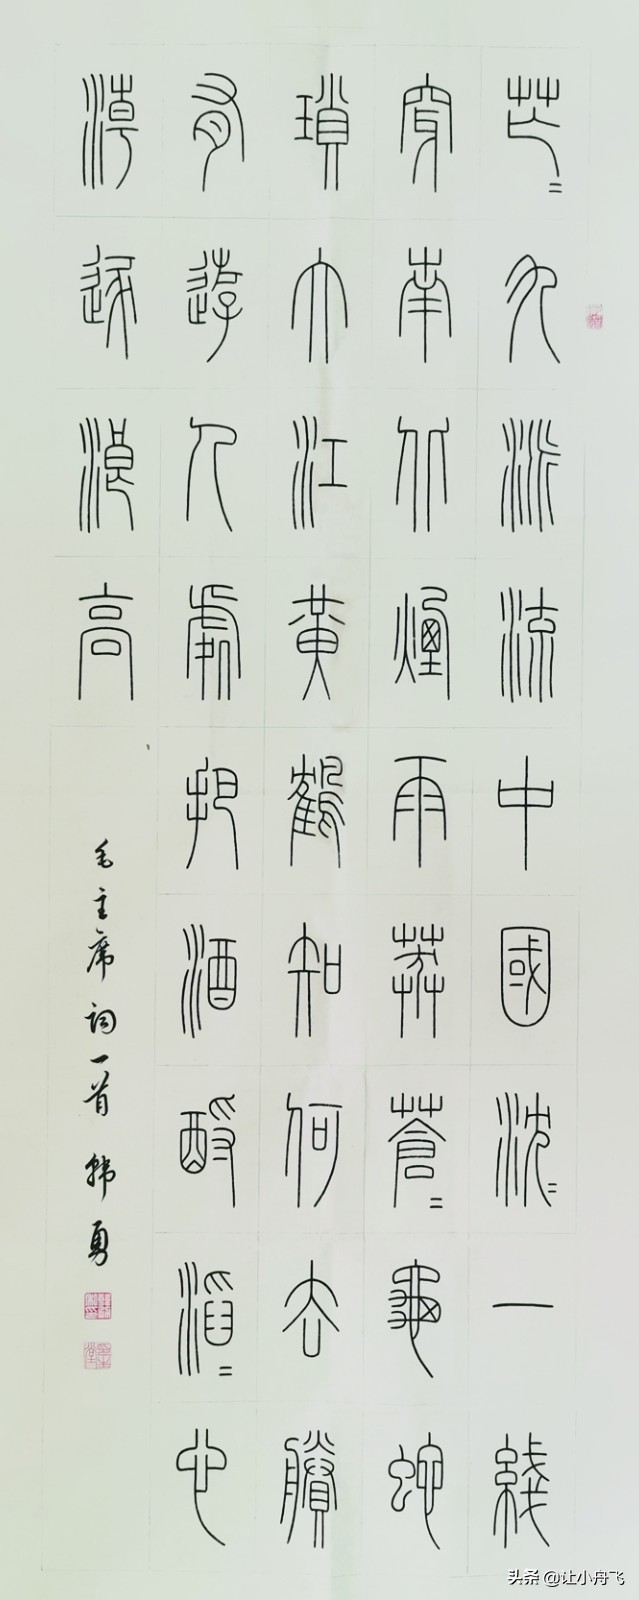 芒〻九派流中國沈〻一綫
穿南北煙雨莽蒼〻龜蛇
瑣大江黃鶴知何去賸
有遊人處把酒酹滔〻心
潮逐浪高
毛主席词一首 韩勇
头条 @让小舟飞